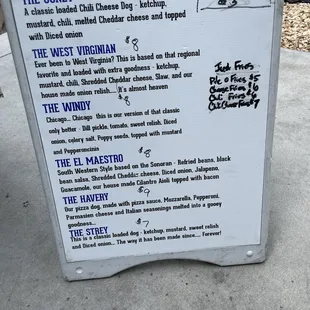 A classic loaded Chili Cheese Dog - ketchup,
mustard, chili, melted Cheddar cheese and topped
with Diced Onion
THE WEST VIRGINIAN $8
Ever been to West Virginia? This is based on that regional
favorite and loaded with extra goodness - ketchup,
mustard, chili, Shredded Cheddar cheese, Slaw, and our
house made onion relish.... It's almost heaven
THE WINDY $8
Chicago... Chicago this is our version of that classic
only better - Dill pickle, tomato, sweet relish, Diced
onion, celery salt, Poppy seeds, topped with mustard
and Pepperoncinis
THE EL MAESTRO $8
South Western Style based on the Sonoran - Refried beans, black
bean salsa, Shredded Cheddar cheese, Diced onion, Jalapeno,
Guacamole, our house made Cilantro Aioli topped with bacon
THE HAVERY $9
Our pizza dog, made with pizza sauce, Mozzarella, Pepperoni,
Parmesian cheese and Italian seasonings melted into a gooey
goodness...
THE STREY $7
This is a classic loaded dog - ketchup, mustard, sweet relish
and Diced onion... The way it has been made since.... Forever!
Fries $5
Cheese Fries $6